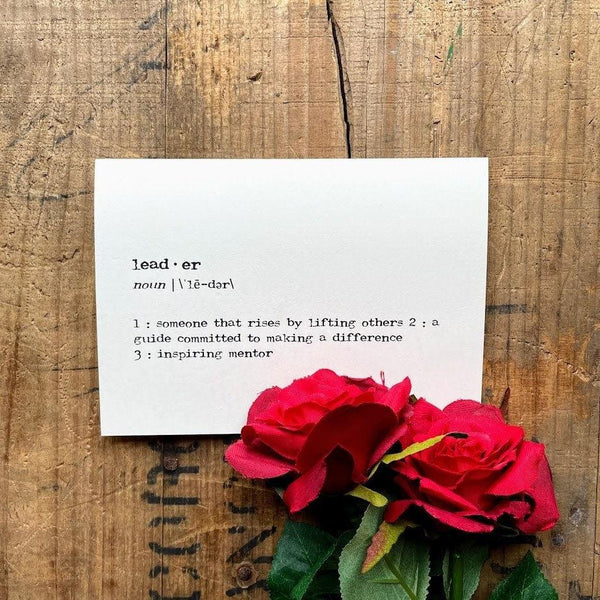 lead·er
noun |\ˈlē-dər\
1 : someone that rises by lifting others 2 : a
guide committed to making a difference
3 : inspiring mentor